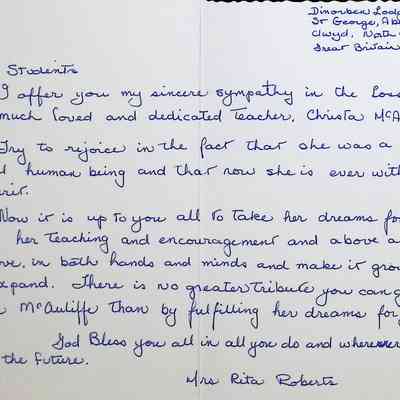 Dinorben Lod
St George, Ab
Clwyd, North
Great Britain
Students
I offer you my sincere sympathy in the loss
much loved and dedicated teacher, Christa McA
Try to rejoice in the fact that she was a
human being and that now she is ever with
irit.
Now it is up to you all to take her dreams fo
her teaching and encouragement and above a
ove, in both hands and minds and make it grow
xpand. There is no greater tribute you can g
McAuliffe than by fulfilling her dreams for
God Bless you all in all you do and wherever
the future.
Mrs Rita Roberts